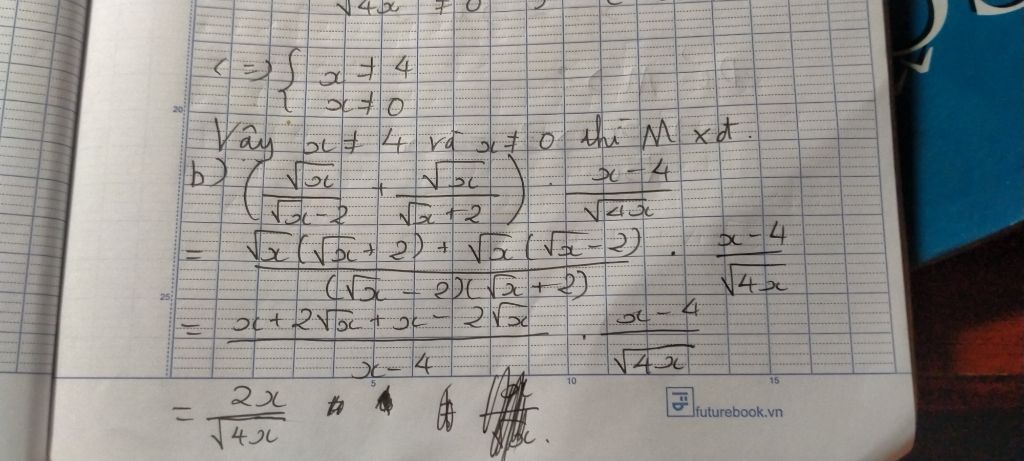 √4x ≠ 0
<=> { x ≠ 4
x ≠ 0
20
Vậy x ≠ 4 và x ≠ 0 thì M xđ.
b) (√x/(√x-2) + √x/(√x+2)) . (x-4)/√4x
= (√x(√x+2) + √x(√x-2))/((√x-2)(√x+2)) . (x-4)/√4x
25
= (x+2√x+x-2√x)/(x-4) . (x-4)/√4x
5 10 15
= 2x/√4x
futurebook.vn